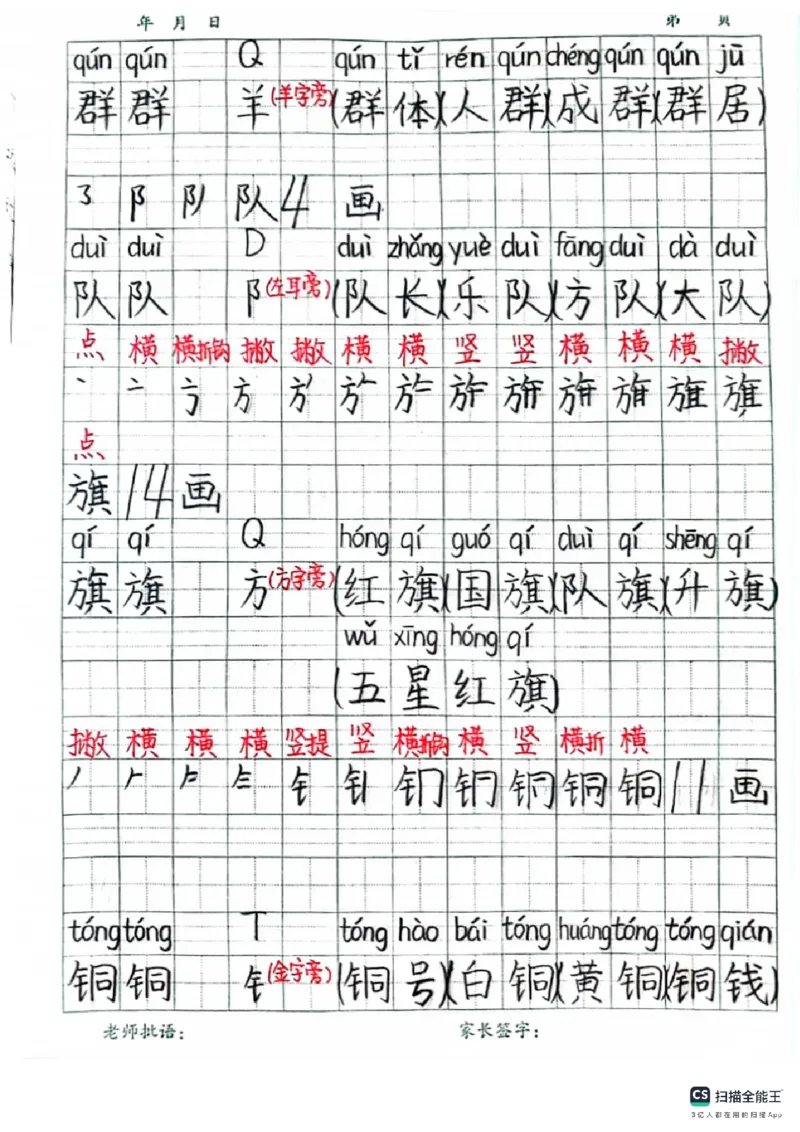 年 月 日 第 页
qún qún Q qún tǐ rén qún chéng qún qún jū
群 群 羊(羊字旁) (群体)(人群)(成群)(群居)
㇌ 阝 队 4 画
duì duì D duì zhǎng yuè duì fāng duì dà duì
队 队 阝(左耳旁) (队长)(乐队)(方队)(大队)
点 横 横折钩 撇 撇 横 横 竖 竖 横 横 横 撇
丶 亠 方 旗
点
旗 14 画
qí qí Q hóng qí guó qí duì qí shēng qí
旗 旗 方(方字旁) (红旗)(国旗)(队旗)(升旗)
wǔ xīng hóng qí
(五星红旗)
撇 横 横 横 竖提 竖 横折钩 横 竖 横折 横
丿 钅 铜 铜 11 画
tóng tóng T tóng hào bái tóng huáng tóng tóng qián
铜 铜 钅(金字旁) (铜号)(白铜)(黄铜)(铜钱)
老师批语: 家长签字:
CS 扫描全能王
3亿人都在用的扫描App